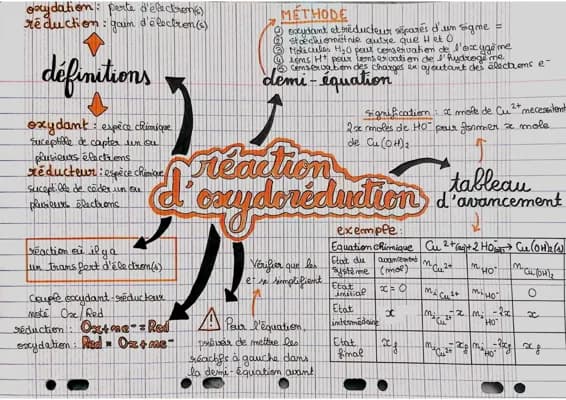 oxydation : perte d'électron(s)
réduction : gain d'électron(s)
définitions
oxydant : espèce chimique
suceptible de capter un ou
plusieurs électrons
réducteur : espèce chimique
suceptible de céder un ou
plusieurs électrons
MÉTHODE
① oxydant et réducteur séparés d'un signe =
② stœchiométrie autre que H et O
③ Molécules H₂O pour conservation de l'oxygène
④ ions H⁺ pour conservation de l'hydrogène
⑤ conservation des charges en ajoutant des électrons e⁻
demi-équation
signification : x mole de Cu²⁺ necessitent
2x moles de HO⁻ pour former x mole
de Cu(OH)₂
réaction
d'oxydoréduction
tableau
d'avancement
réaction où il y a
un transfert d'électron(s)
Couple oxydant-réducteur
noté Ox/Red
réduction : Ox + ne⁻ = Red
oxydation : Red = Ox + ne⁻
Vérifier que les
e⁻ se simplifient
Pour l'équation,
de mettre les
réactifs à gauche dans
la demi-équation avant
exemple :
Equation chimique Cu²⁺(aq) + 2HO⁻(aq) → Cu(OH)₂(s)
Etat du système avancement (mol) n Cu²⁺ n HO⁻ n Cu(OH)₂
Etat initial x = 0 nᵢ Cu²⁺ nᵢ HO⁻ 0
Etat intermédiaire x nᵢ Cu²⁺ - x nᵢ HO⁻ - 2x x
Etat final xf nᵢ Cu²⁺ - xf nᵢ HO⁻ - 2xf xf